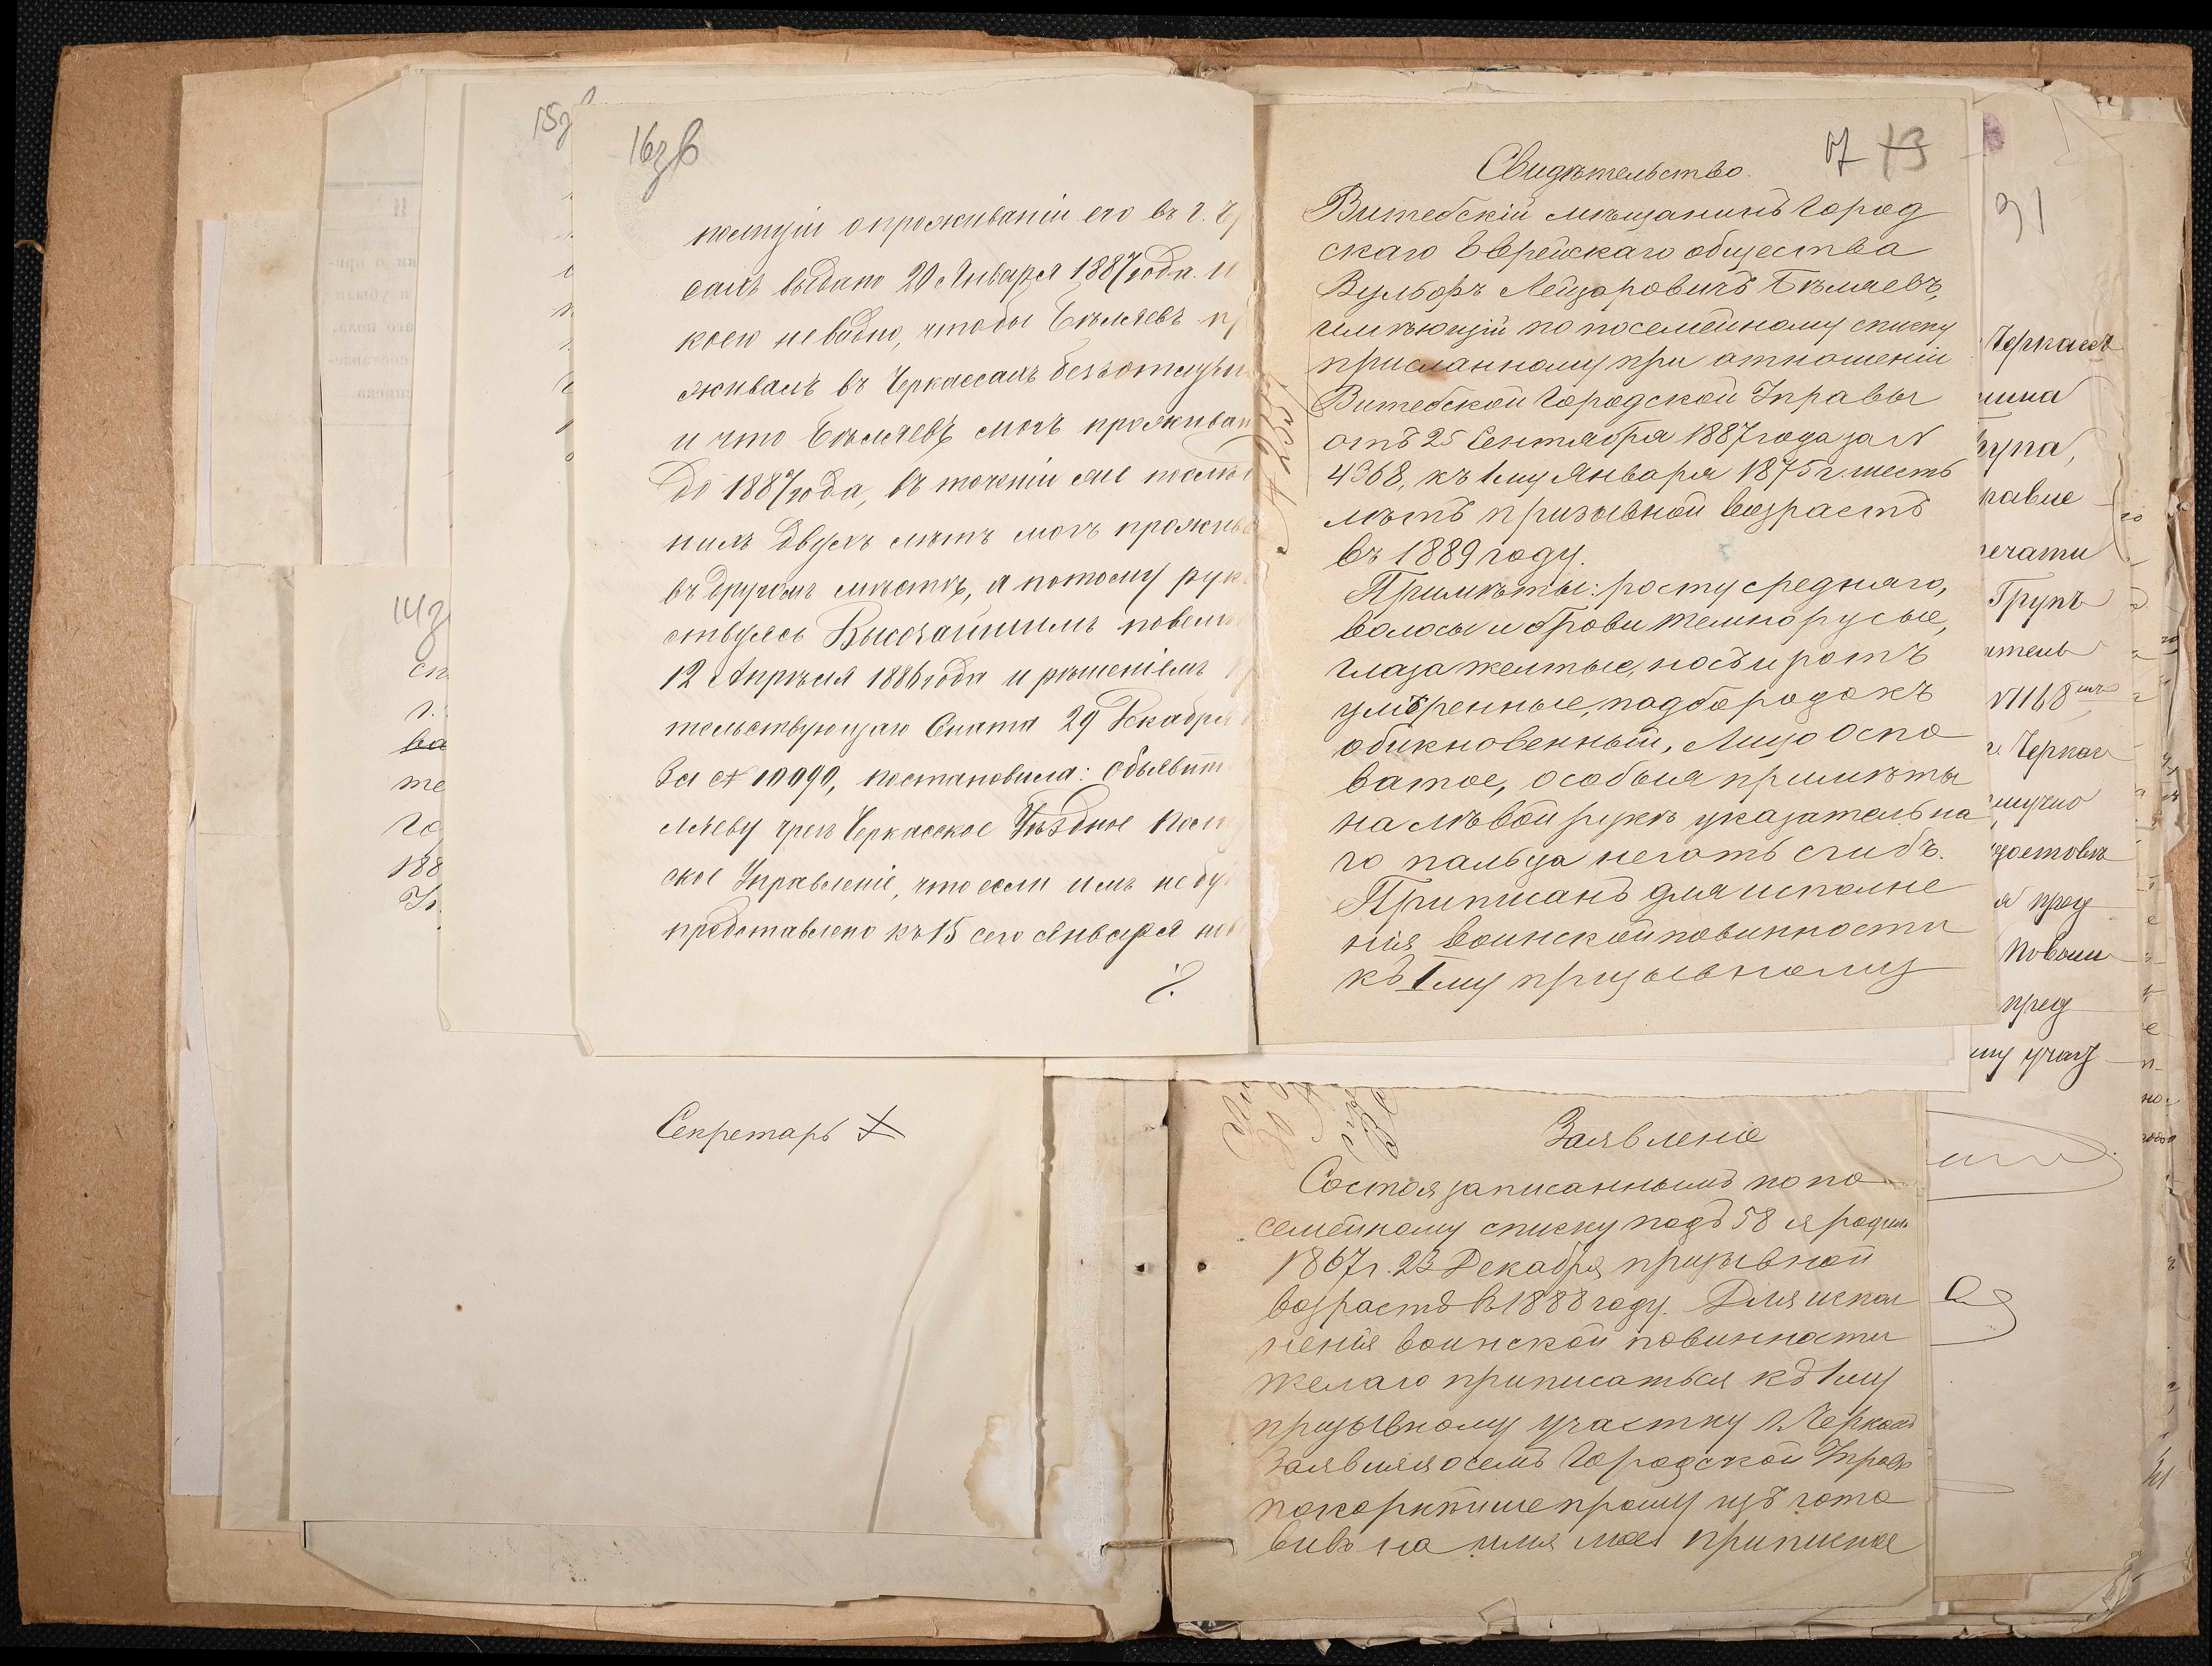 15з
16зв
полиціи о проживаніи его въ г. Ч
сахъ выдано 20 Января 1887 года. и
коего не видно, чтобы Бѣляевъ пр
живалъ въ Черкассахъ безъотлучн
и что Бѣляевъ могъ проживат
до 1887 года, въ теченіи же послѣд
нихъ двухъ лѣтъ могъ прожив
въ другомъ мѣстѣ, а потому рук
ствуясь Высочайшимъ повелѣ
12 Апрѣля 1886 года и рѣшеніемъ П
тельствующаго Сената 29 Декабря
За № 10090, постановила: объявит
ляеву чрезъ Черкасское Уѣздное Поли
ское Управленіе, что если имъ не бу
представлено къ 15 сего Января
14з
сп
г.
ва
те
го
188
Секретарь
17 13
Свидѣтельство.
Витебскій мѣщанинъ Город
скаго Еврейскаго общества
Вульфъ Лейзаровичъ Бѣляевъ,
имѣющій по посемейному списку
присланному при отношеніи
Витебской Городской Управы
отъ 25 Сентября 1887 года за №
4368, къ 1му Января 1875 г. шесть
лѣтъ призывной возрастъ
въ 1889 году.
Примѣты: росту средняго,
волосы и брови темнорусые,
глаза желтые, носъ и ротъ
умѣренные, подбородокъ
обикновенный, Лицо оспо
ватое, особыя примѣты
на лѣвой рукѣ указательна
го пальца ногать сгибъ.
Приписанъ для исполне
нія воинской повинности
къ 1му призывному
Заявленіе
Состоя записаннымъ по по
семейному списку подъ 58 я родил
1867 г. 23 Декабря призывной
возрастъ въ 1888 году. Для испол
ненія воинской повинности
желаю приписаться къ 1му
призывному участку г. Черкасъ
Заявляя о семъ Городской Управѣ
покорнѣйше прошу изъ гото
вивъ на имя мое приписное
31
Черкасъ
рупа,
равле
печати
Трупъ
итель
№ 1168
г. Черкас
лучно
достовѣ
я пред
Повѣщ
пред
му учас